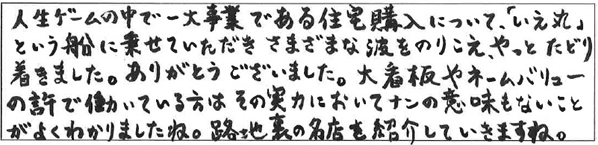 人生ゲームの中で一大事業である住宅購入について、「いえ丸」
という船に乗せていただき さまざまな波をのりこえ、やっと たどり
着きました。ありがとう ございました。大看板やネームバリュー
の許で働いている方は その実力においてナンの意味もないこと
がよくわかりましたね。路地裏の名店を紹介していきますね。